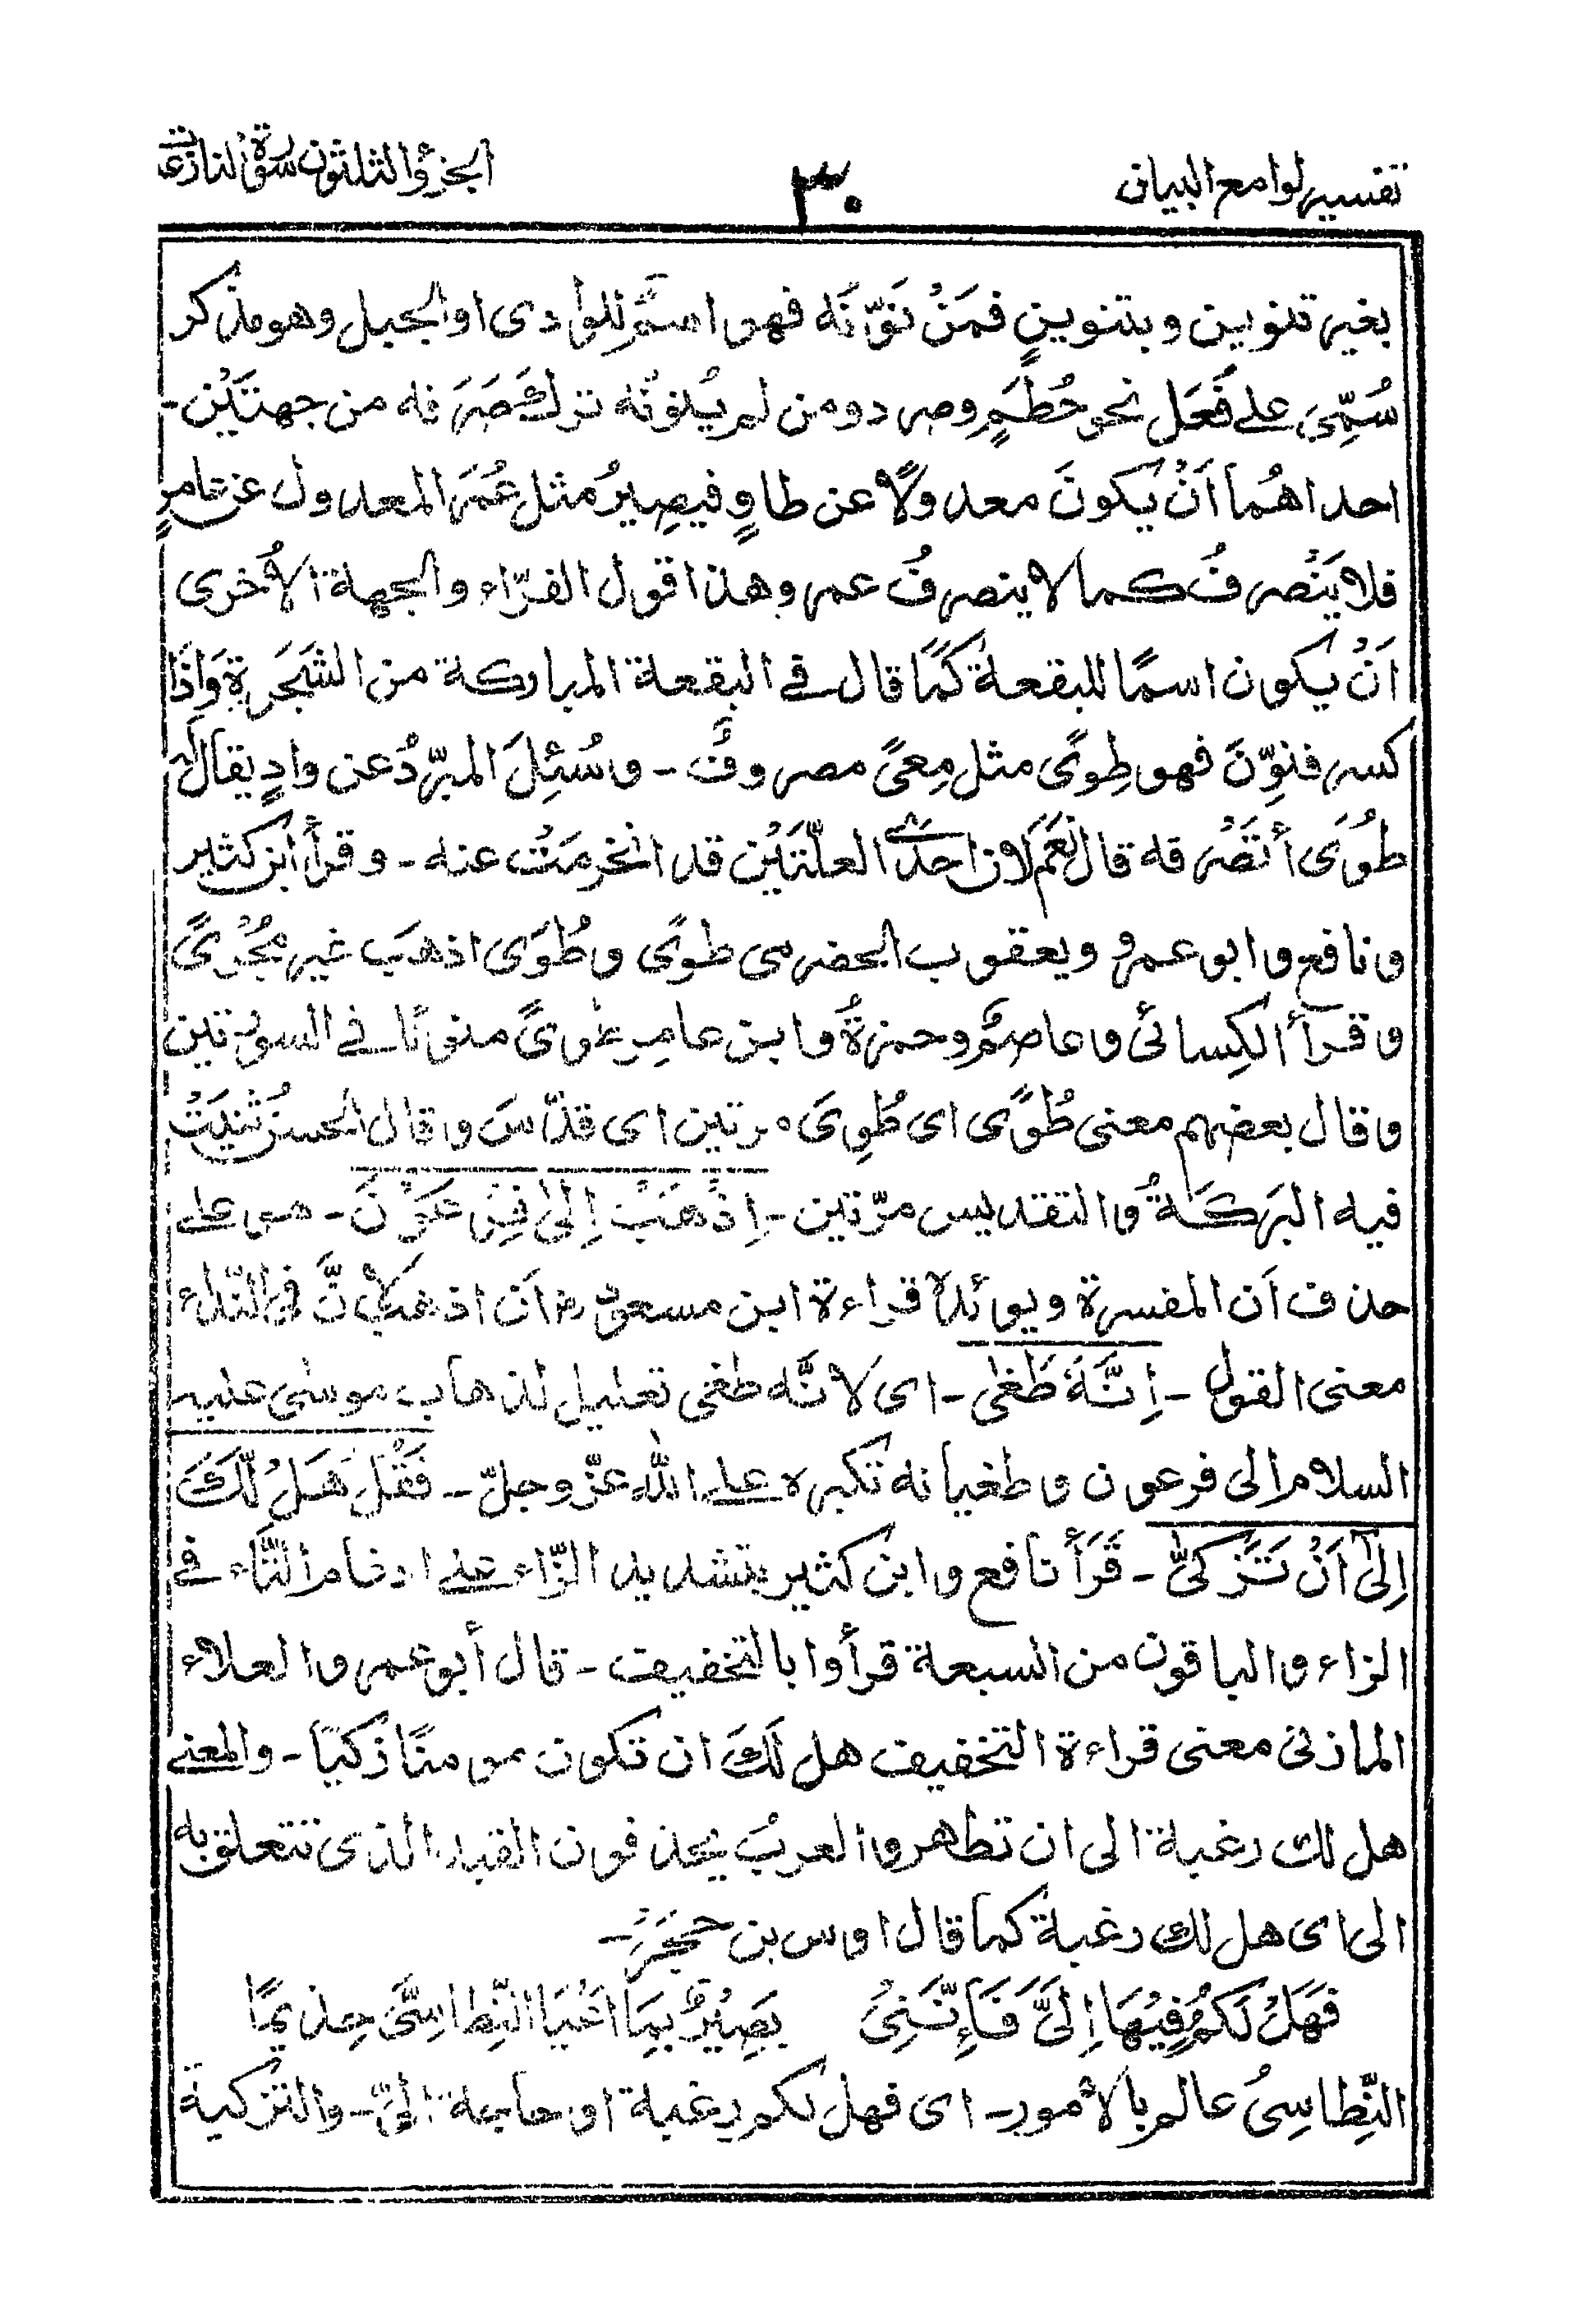 تفسير لوامع البيان
٣٠
الجزؤ الثلثون سورة النازعت
بغير تنوين و بتنوينٍ فمَنْ نَوّنَه فهو اسمٌ للوادى او الجبل وهو مذكر
سُمِّىَ على فُعَل نحو حُطَمٍ وصرد ومن لم يُنوّنْه ترك صَرَفه من جهتَيْن-
احداهُما اَنْ يكونَ معدولًا عن طاوٍ فيصِيرُ مثل عُمَر المعدول عن عامرٍ
فلا يَنْصرفُ كما لا ينصرفُ عمر وهذا قول الفرّاء والجهة الأخرى
اَنْ يكون اسمًا للبقعة كَمَا قال فى البقعة المباركة من الشَجَرة وَاِذَا
كسر فنوِّنَ فهو طِوىً مثل مِعىً مصروفٌ - وسُئِلَ المبرّدُ عن وادٍ يقال له
طُوَى أتَصْرفه قال نَعَم لان احدَى العلّتَيْن قد انْخرمَتْ عنه - وقرأ ابن كثير
ونافع وابو عمرو ويعقوب الحضرمى طوىً وطُوَى اذهبَ غير مُجْرىً
وقرأ الكِسائى وعاصمٌ وحمزةُ وابن عامرٍ طُوىً منوّنًا فى السورتين
وقال بعضهم معنى طُوًى اى طُوِىَ مرتين اى قدّسَ وقال الحسن ثنيَتْ
فيه البَرَكَةُ والتقديس مرّتين - اِذْهَبْ اِلىٰ فِرْعَوْنَ - هو على
حذف اَن المفسرة ويوائده قراءة ابن مسعودٍ رض اَن اذهب لانَّ فى النّداء
معنى القول - اِنَّهٗ طَغٰى - اى لانَّه طغى تعليل لذهاب موسٰى عليه
السلام الى فرعون وطغيانه تكبره على اللّٰه عزّ وجلّ - فَقُلْ هَلْ لَّكَ
اِلىٰٓ اَنْ تَزَّكىّٰ - قَرَأ نافع وابن كثير بتشديد الزّاء على ادغام التَّاء فى
الزاء والباقون من السبعة قرأوا بالتخفيف - قال أبو عمر والعلاء
المازنى معنى قراءة التخفيف هل لَكَ ان تكون مومنًا زكيًا - والمعنى
هل لك رغبة الى ان تطهر والعربُ يحذفون القيد الذى تتعلق به
الى اى هل لك رغبة كما قال اوس بن حَجَرْ -
فَهَلْ لَكُمْ فِيْهَا اِلَىَّ فَاِنَّنِىْ بَصِيْرٌ بِمَا اَعْيَا النِّطاسِىَّ حِذيمًا
النِّطاسِىُ عالم بالأمور - اى فهل لكم رغبة او حاجة الىَّ - والتزكية